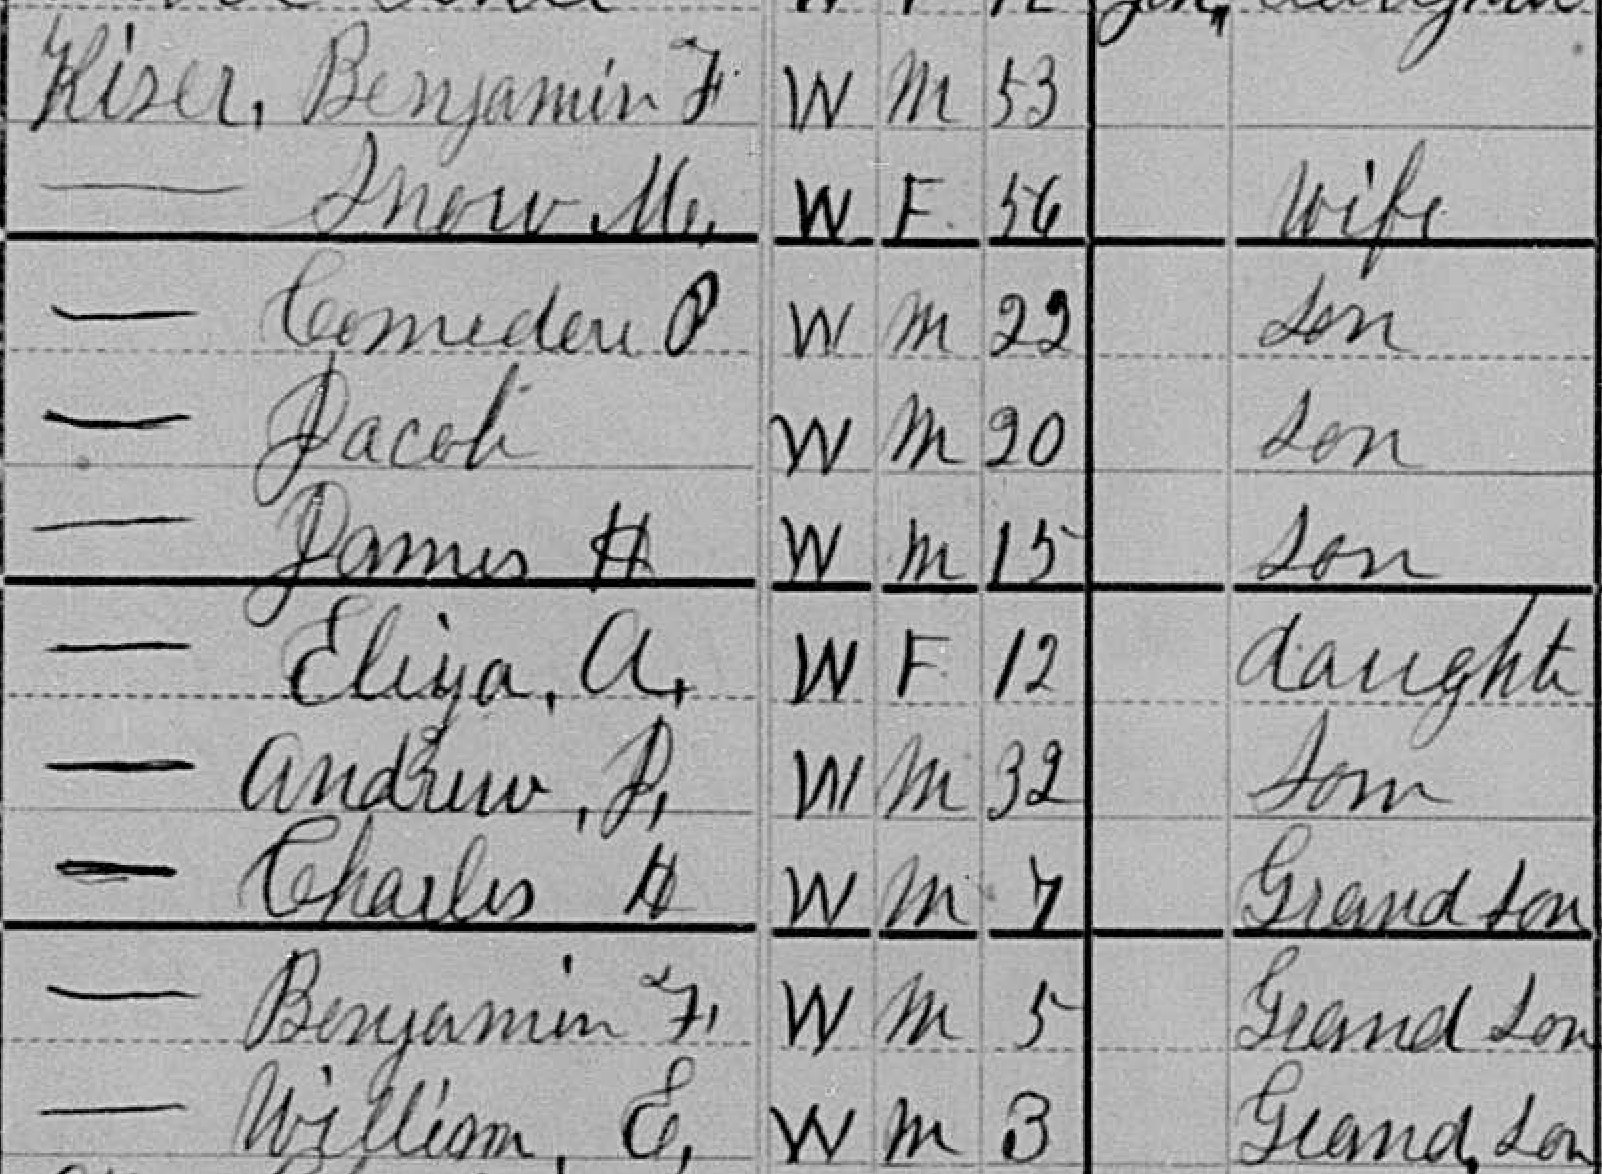 Kiser, Benjamin F. W M 53
— Snow M. W F 56 Wife
— Comedore P W M 22 Son
— Jacob W M 20 Son
— James H W M 15 Son
— Eliza, A. W F 12 daughte
— Andrew, J, W M 32 Son
— Charles H W M 7 Grand Son
— Benjamin F, W M 5 Grand Son
— William, E, W M 3 Grand, Son